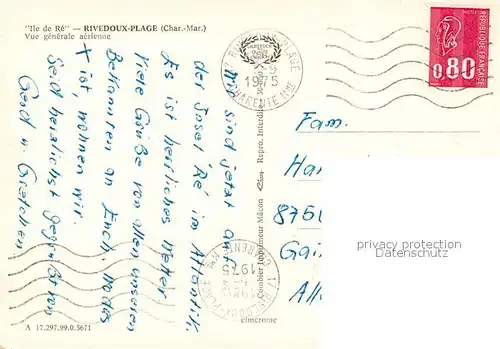 "Ile de Ré" — RIVEDOUX-PLAGE (Char.-Mar.)
Vue générale aérienne
Wir sind jetzt auf
der Insel Ré im Atlantik.
Es ist herrliches Wetter
Viele Grüße von allen unseren
Bekannten an Euch. Wo das
X ist, wohnen wir.
Seid herzlichst gegrüßt von
Gerd u. Gretchen
Combier Imprimeur Mâcon
Repro. Interdite
cimcrome
A 17.297.99.0.5671
1975
CHARENTE Mme
17 RIVEDOUX-PLAGE
1975
CHARENTE Mme
0,80
REPUBLIQUE FRANÇAISE
Fam.
Han
8750
Gai
All
privacy protection
Datenschutz